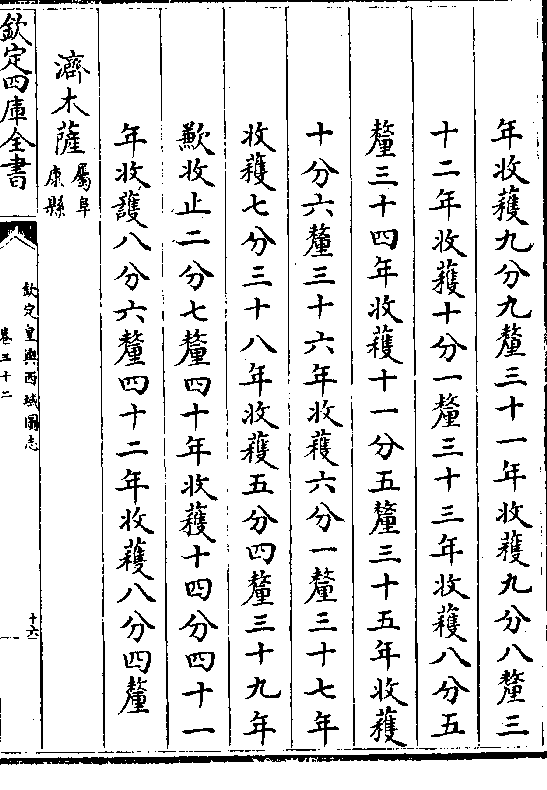 年收穫九分九釐三十一年收穫九分八釐三
十二年收穫十分一釐三十三年收穫八分五
釐三十四年收穫十一分五釐三十五年收穫
十分六釐三十六年收穫六分一釐三十七年
收穫七分三十八年收穫五分四釐三十九年
歉收止二分七釐四十年收穫十四分四十一
年收護八分六釐四十二年收穫八分四釐
濟木薩屬阜康縣
欽定四庫全書
欽定皇輿西域圖志
卷三十二
十六